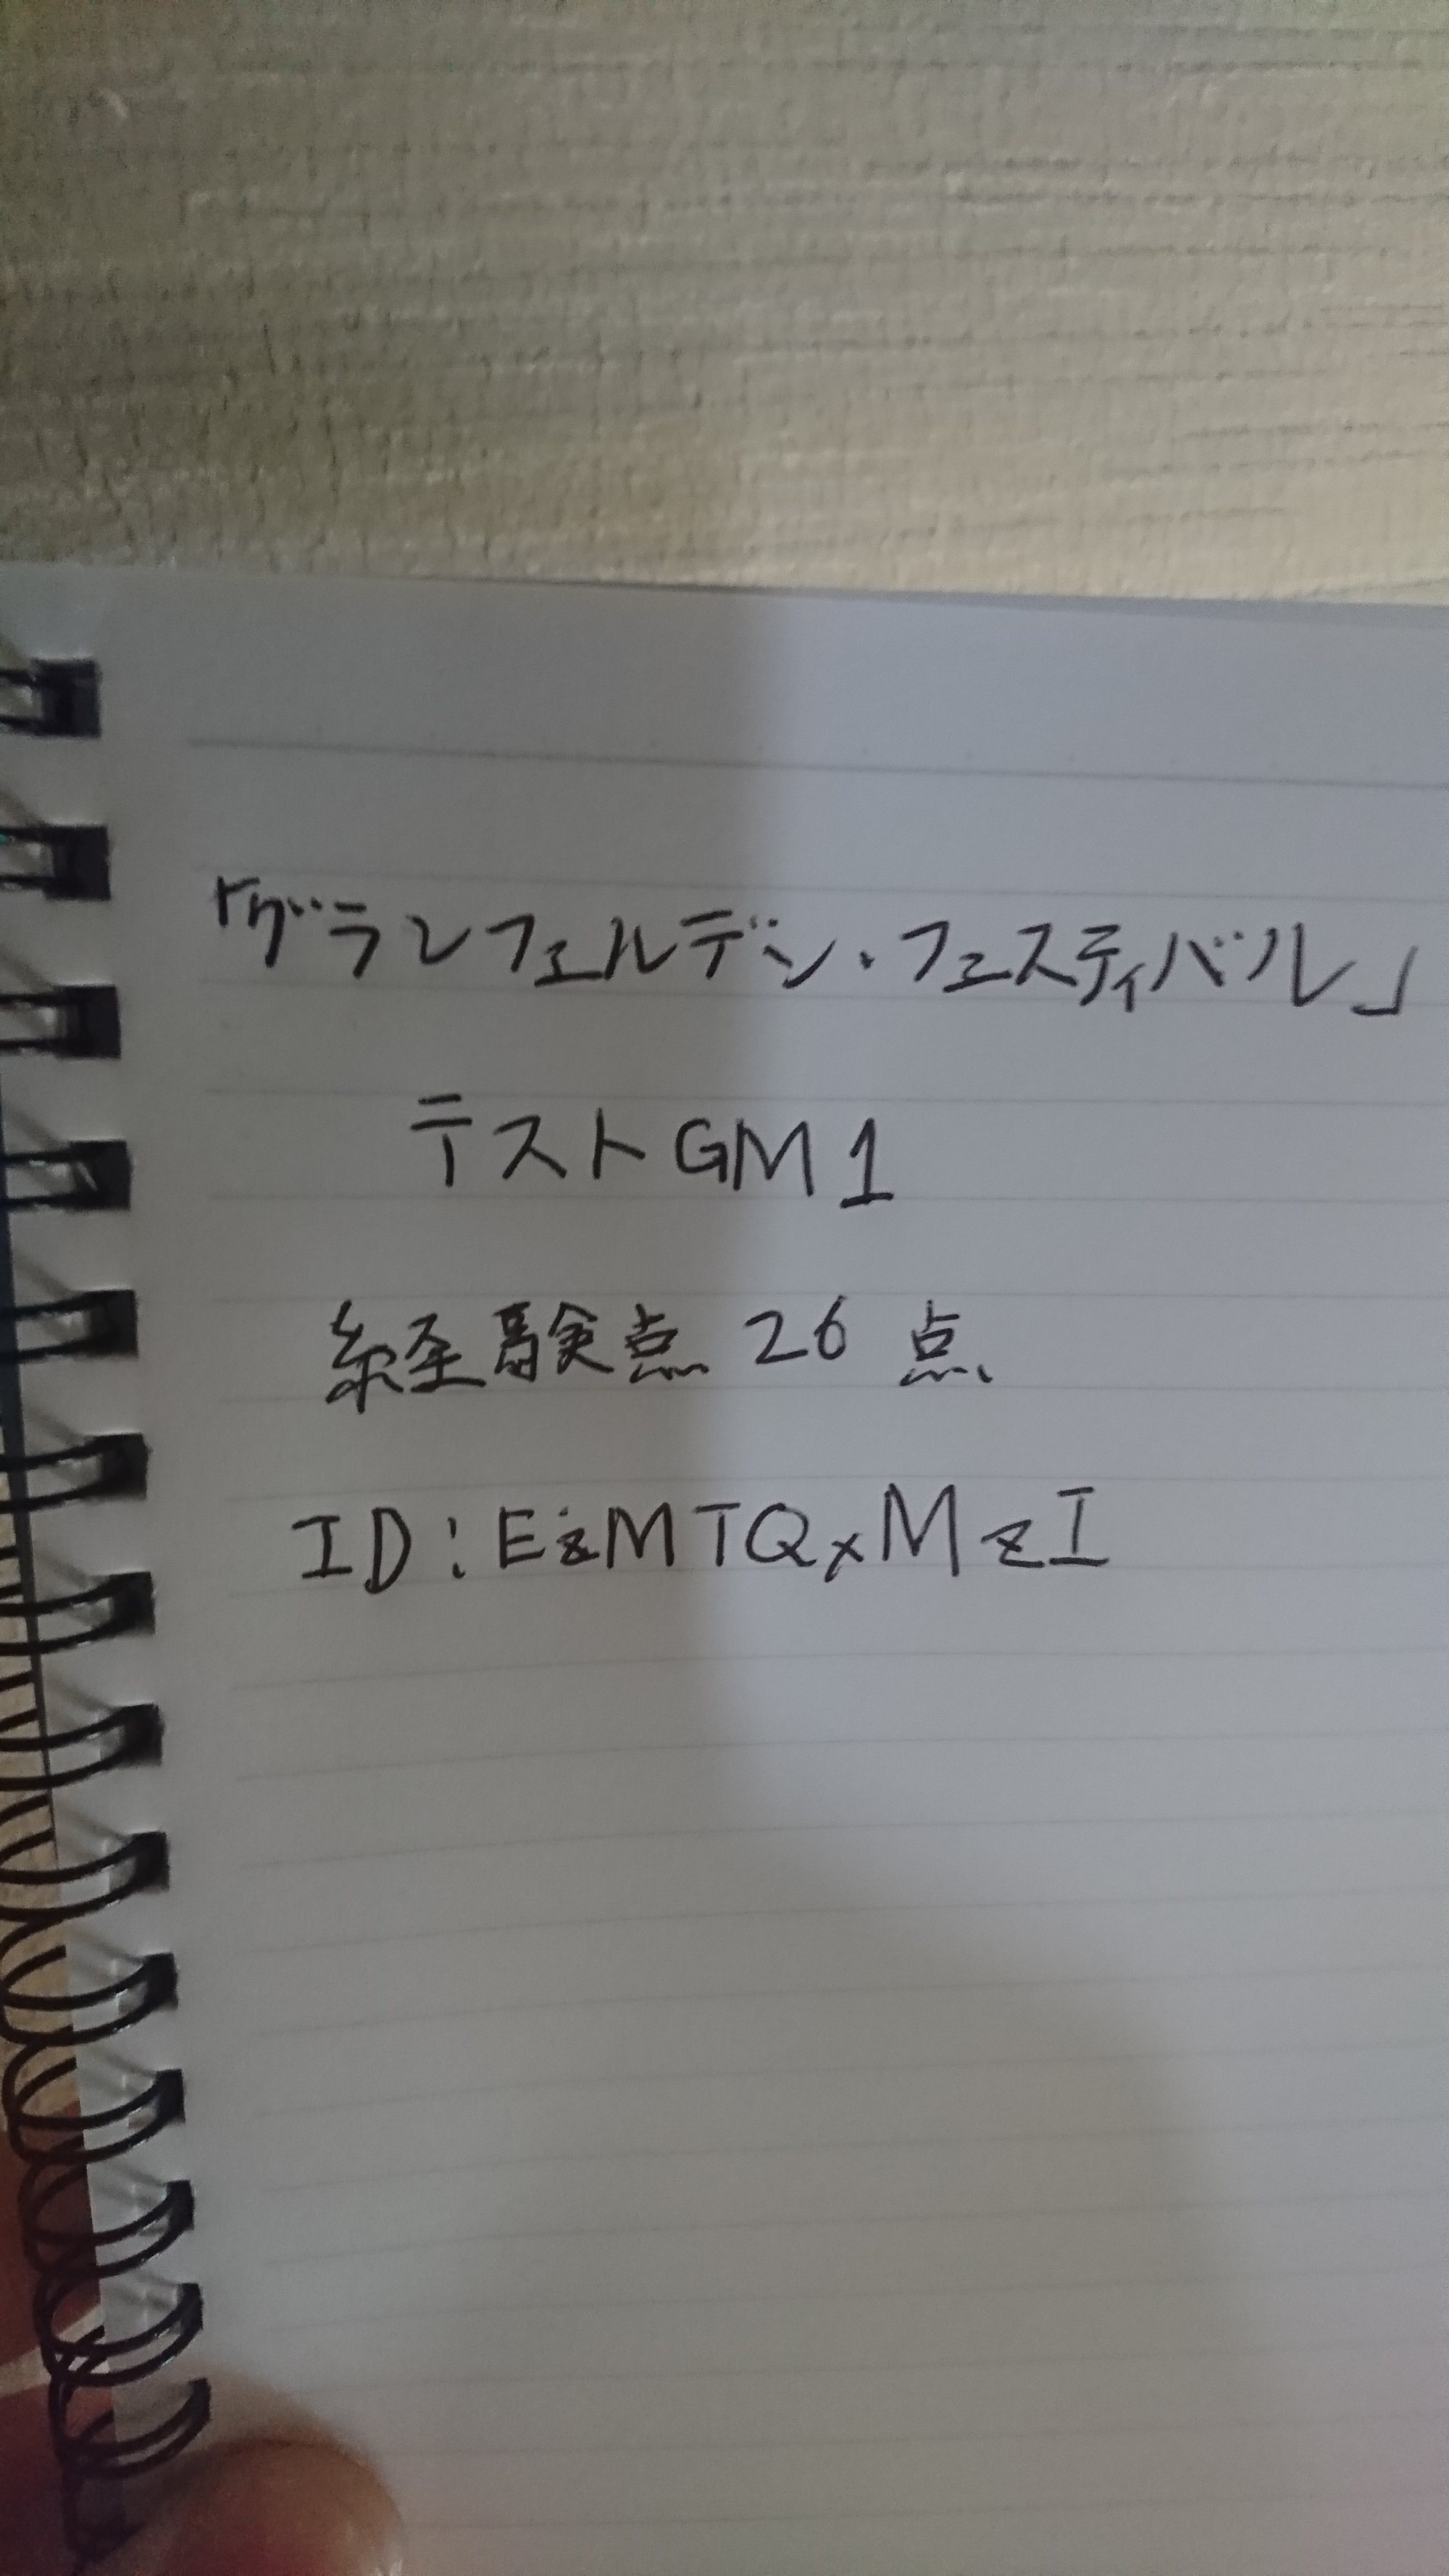 「グランフェルデン・フェスティバル」
テストGM1
経験点 26 点
ID:EzMTQxMzI